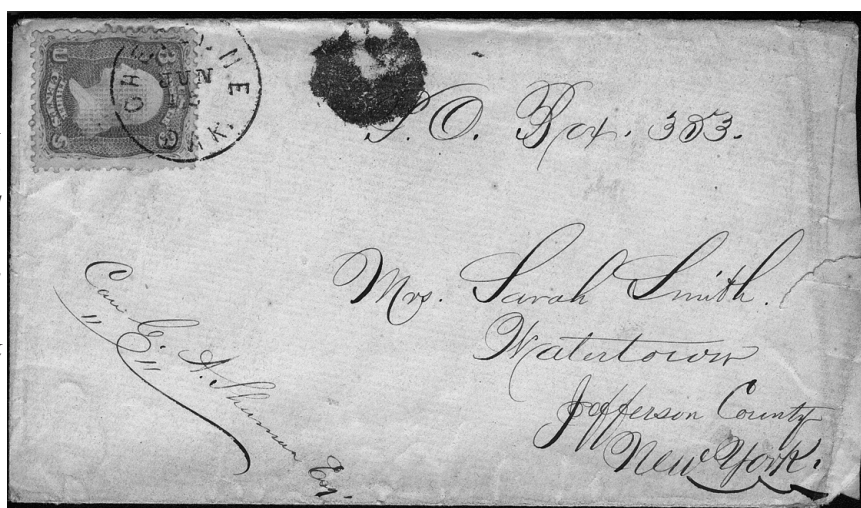 JUN
P. O. Box. 353.
Mrs. Sarah Smith.
Watertown
Jefferson County
New York.
Care C. A. Sherman Esq.